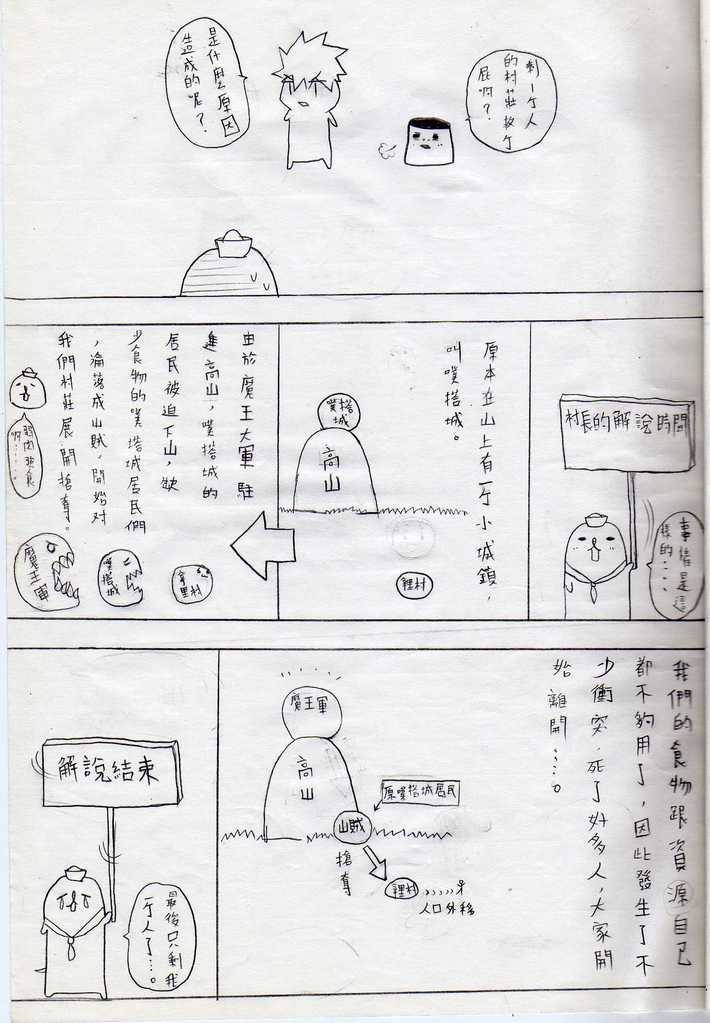 剩一个人
的村莊救个
屁啊？
是什麼原因
造成的呢？
村長的解說時間
事情是這
樣的....
原本在山上有一个小城鎮，
叫噗搭城。
噗搭
城
高山
裡村
由於魔王大軍駐
進高山，噗搭城的
居民被迫下山，缺
少食物的噗搭城居民們
，淪落成山賊，開始對
我們村莊展開搶奪。
弱肉強食
啊.....
噗搭城
魔王軍
我們的食物跟資源自己
都不夠用了，因此發生了不
少衝突，死了好多人，大家開
始離開....。
魔王軍
高山
原噗搭城居民
山賊
搶奪
裡村
人口外移
解說結束
最後只剩我
一个人了...。